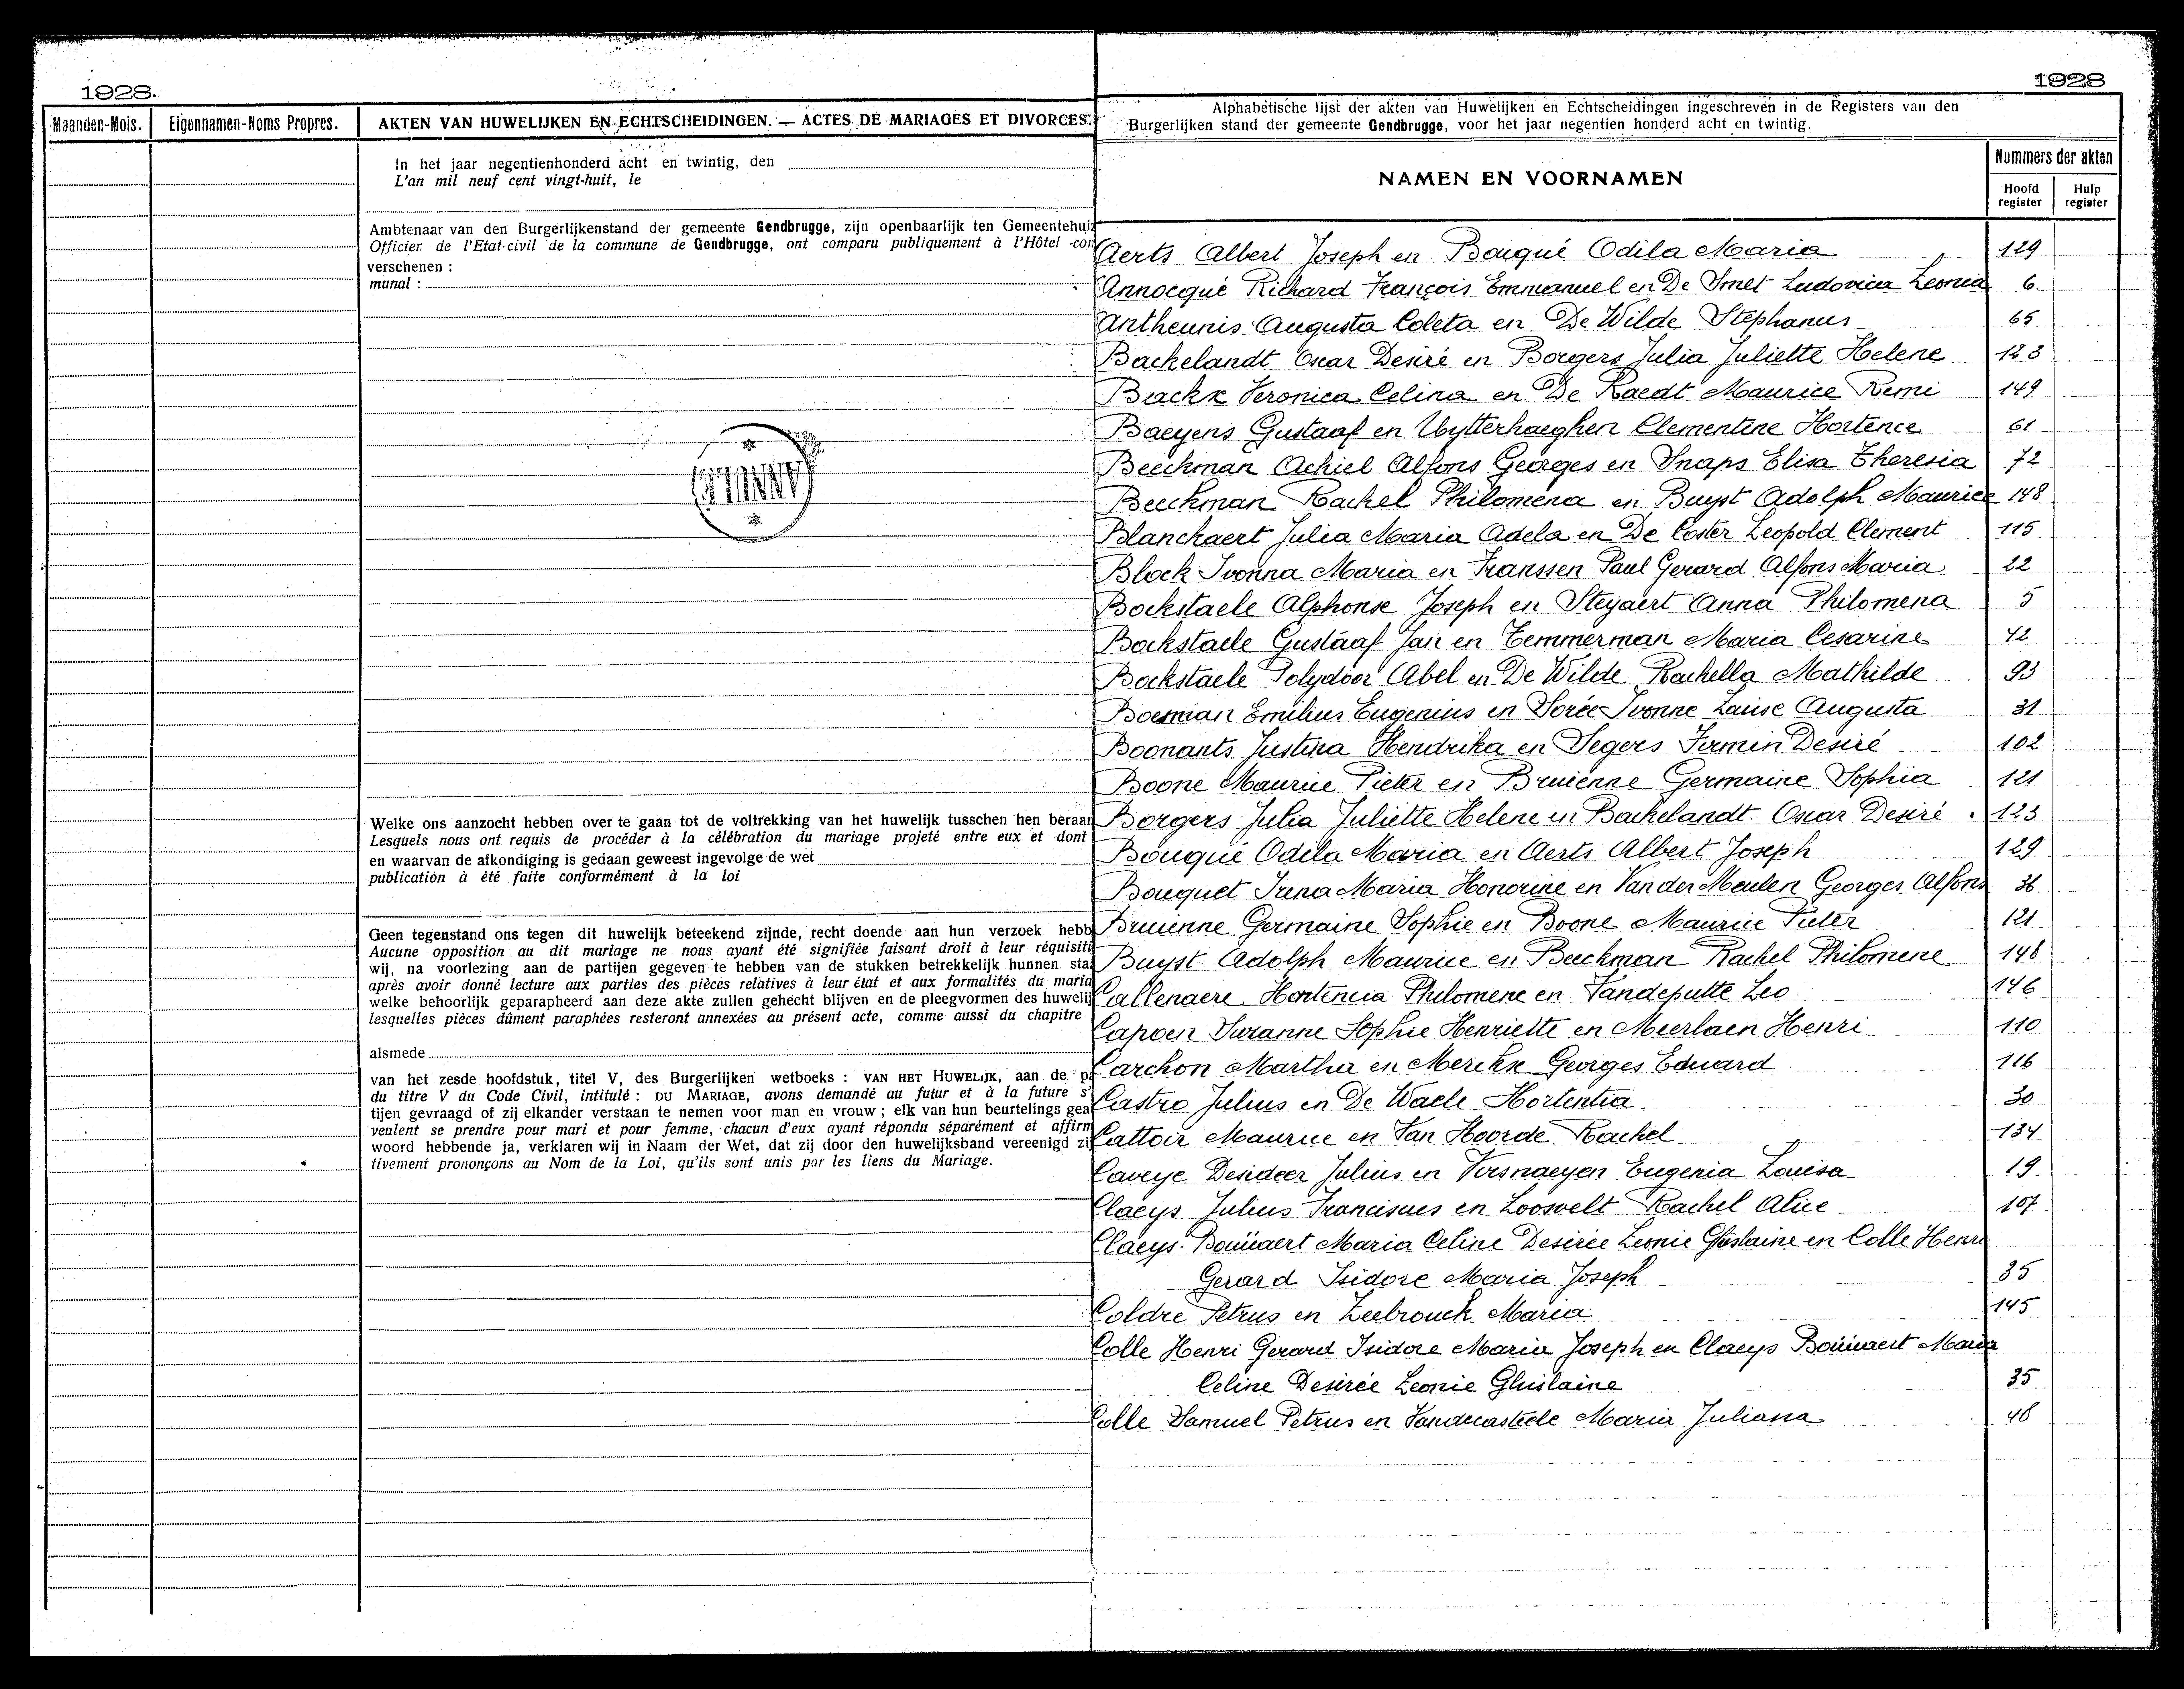 1928.
Maanden-Mois. Eigennamen-Noms Propres. AKTEN VAN HUWELIJKEN EN ECHTSCHEIDINGEN. — ACTES DE MARIAGES ET DIVORCES.
In het jaar negentienhonderd acht en twintig, den
L'an mil neuf cent vingt-huit, le
Ambtenaar van den Burgerlijkenstand der gemeente Gendbrugge, zijn openbaarlijk ten Gemeentehuiz
Officier de l'Etat-civil de la commune de Gendbrugge, ont comparu publiquement à l'Hôtel -com
verschenen :
munal :
Welke ons aanzocht hebben over te gaan tot de voltrekking van het huwelijk tusschen hen beraam
Lesquels nous ont requis de procéder à la célébration du mariage projeté entre eux et dont
en waarvan de afkondiging is gedaan geweest ingevolge de wet
publication à été faite conformément à la loi
Geen tegenstand ons tegen dit huwelijk beteekend zijnde, recht doende aan hun verzoek hebb
Aucune opposition au dit mariage ne nous ayant été signifiée faisant droit à leur réquisiti
wij, na voorlezing aan de partijen gegeven te hebben van de stukken betrekkelijk hunnen sta
après avoir donné lecture aux parties des pièces relatives à leur état et aux formalités du maria
welke behoorlijk geparapheerd aan deze akte zullen gehecht blijven en de pleegvormen des huwelij
lesquelles pièces dûment paraphées resteront annexées au présent acte, comme aussi du chapitre
alsmede
van het zesde hoofdstuk, titel V, des Burgerlijken wetboeks : VAN HET HUWELIJK, aan de pa
du titre V du Code Civil, intitulé : DU MARIAGE, avons demandé au futur et à la future s'
tijen gevraagd of zij elkander verstaan te nemen voor man en vrouw ; elk van hun beurtelings gea
veulent se prendre pour mari et pour femme, chacun d'eux ayant répondu séparément et affirm
woord hebbende ja, verklaren wij in Naam der Wet, dat zij door den huwelijksband vereenigd zij
tivement prononçons au Nom de la Loi, qu'ils sont unis par les liens du Mariage.
1928
Alphabetische lijst der akten van Huwelijken en Echtscheidingen ingeschreven in de Registers van den
Burgerlijken stand der gemeente Gendbrugge, voor het jaar negentien honderd acht en twintig.
NAMEN EN VOORNAMEN
Nummers der akten
Hoofd register Hulp register
Aerts Albert Joseph en Bouqué Odila Maria 129
Annocqué Richard François Emmanuel en De Smet Ludovica Leonia 6
Antheunis Augusta Coleta en De Wilde Stephanus 65
Backelandt Oscar Desiré en Borgers Julia Juliette Helene 123
Backx Veronica Celina en De Raedt Maurice Remi 149
Baeyens Gustaaf en Uytterhaeghen Clementine Hortence 61
Beeckman Achiel Alfons Georges en Snaps Elisa Theresia 72
Beeckman Rachel Philomena en Buyst Adolph Maurice 148
Blanckaert Julia Maria Adela en De Coster Leopold Clement 115
Block Ivonna Maria en Franssen Paul Gerard Alfons Maria 22
Bockstaele Alphonse Joseph en Steyaert Anna Philomena 5
Bockstaele Gustaaf Jan en Temmerman Maria Cesarine 42
Bockstaele Polydoor Abel en De Wilde Rachella Mathilde 93
Boerman Emilius Eugenius en Sorée Ivonne Laise Augusta 31
Boonants Justina Hendrika en Segers Firmin Desiré 102
Boone Maurice Pieter en Bruienne Germaine Sophia 121
Borgers Julia Juliette Helene en Backelandt Oscar Desiré 123
Bouqué Odila Maria en Aerts Albert Joseph 129
Bouquet Irena Maria Honorine en Van der Meulen Georges Alfons 36
Bruienne Germaine Sophie en Boone Maurice Pieter 121
Buyst Adolph Maurice en Beeckman Rachel Philomene 148
Callenaere Hortencia Philomene en Vandeputte Leo 146
Capoen Suzanne Sophie Henriette en Meerlaen Henri 110
Carchon Martha en Merckx Georges Eduard 116
Castro Julius en De Waele Hortentia 30
Cattoir Maurice en Van Hoorde Rachel 134
Caveye Desideer Julius en Versnaeyen Eugenia Louisa 19
Claeys Julius Franciscus en Loosvelt Rachel Alice 107
Claeys-Boúúaert Maria Celine Desirée Leonie Ghislaine en Colle Henri
Gerard Isidore Maria Joseph 35
Coldre Petrus en Zeebrouck Maria 145
Colle Henri Gerard Isidore Maria Joseph en Claeys Boúúaert Maria
Celine Desirée Leonie Ghislaine 35
Colle Samuel Petrus en Vandecasteele Maria Juliana 48